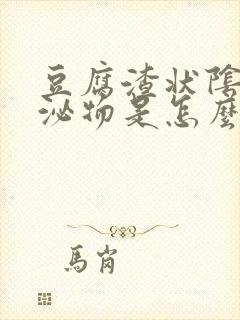 豆腐渣状陰
泌物是怎麼
馬崗